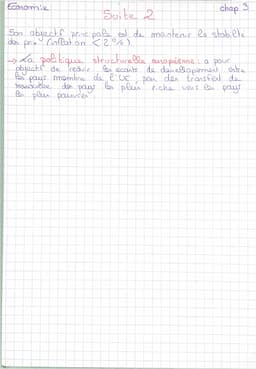 Economie
chap 3
Suite 2
Son objectif principale est de maintenir la stabilité
des prix (inflation < 2%)
→ La politique structurelle européenne : a pour
objectif de réduir les écarts de développement entre
les pays membre de l'UE, par des transfert de
des pays les plus riche vers les pays
les plus pauvres.